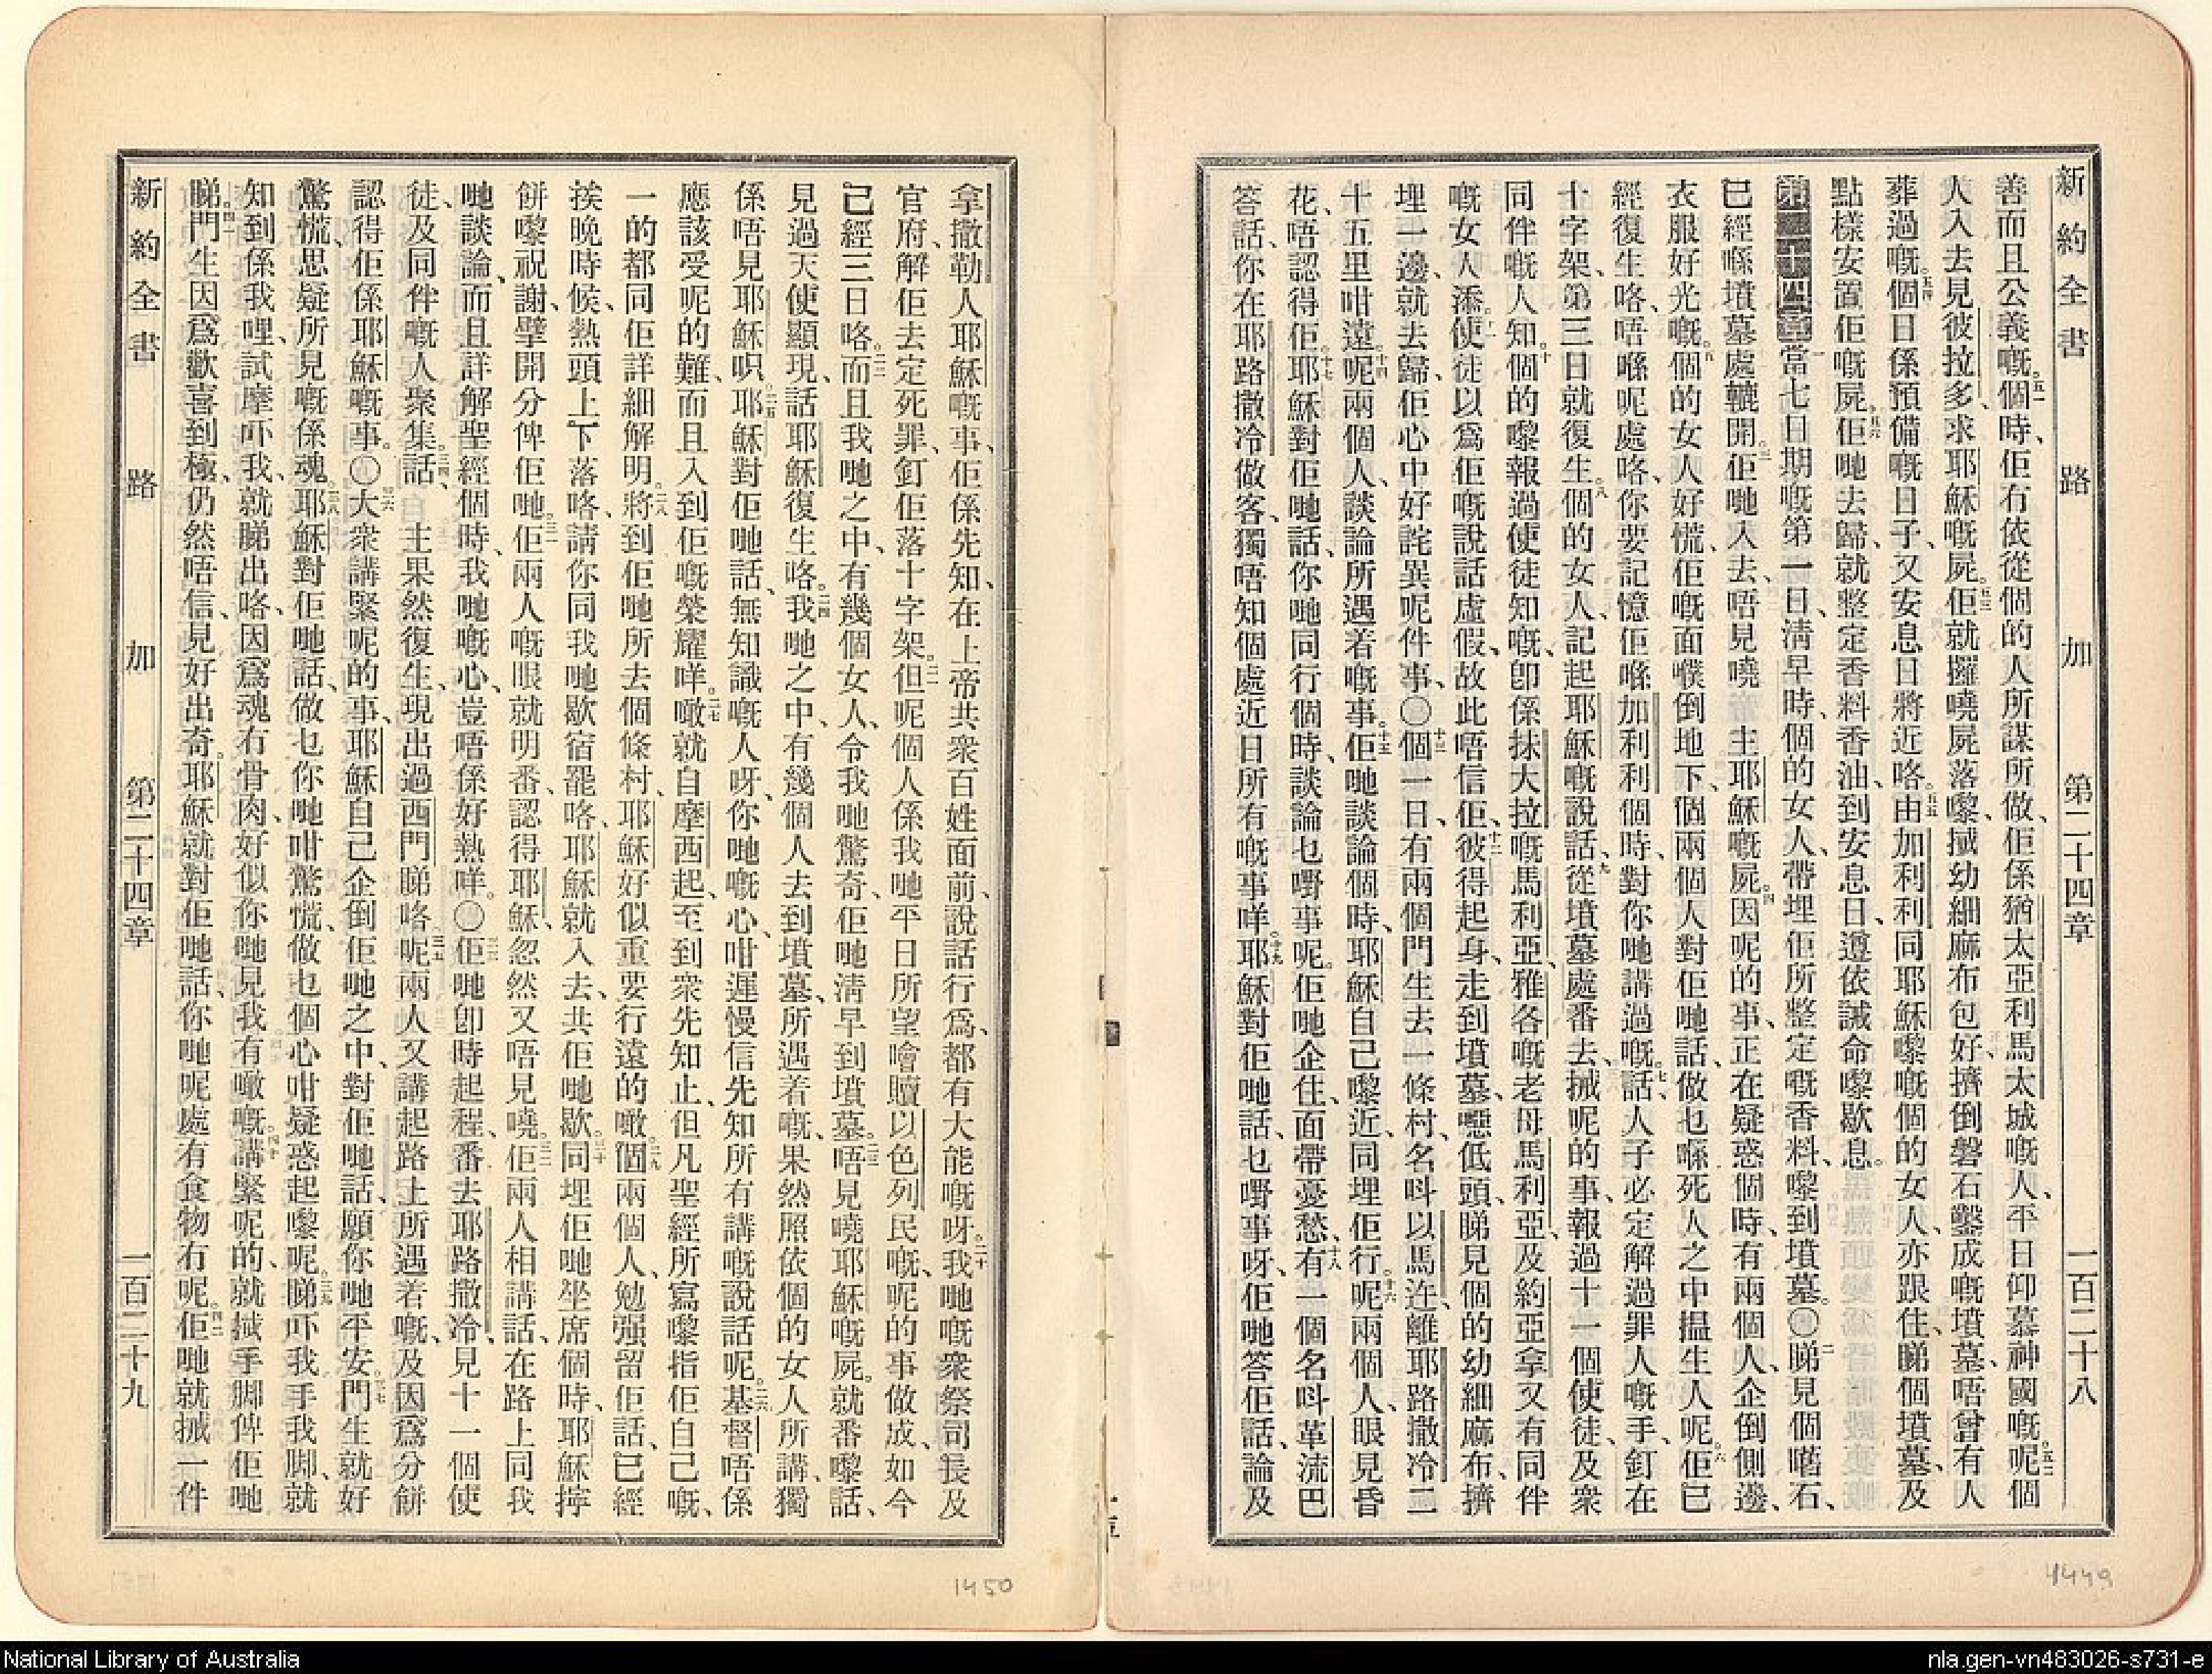 新約全書 路 加 第二十四章 一百二十八
善而且公義嘅。五一個時、佢有依從個的人所謀所做、佢係猶太亞利馬太城嘅人、平日仰慕神國嘅。五二呢個
人入去見彼拉多、求耶穌嘅屍。五三佢就攞嘵屍落嚟、搣幼細麻布包好、擠倒磐石鑿成嘅墳墓、唔曾有人
葬過嘅。五四個日係預備嘅日子、又安息日將近咯。五五由加利利同耶穌嚟嘅個的女人、亦跟住、睇個墳墓、及
點樣安置佢嘅屍。五六佢哋去歸、就整定香料香油、到安息日、遵依誡命嚟歇息。
第二十四章 一當七日期嘅第一日、淸早時、個的女人、帶埋佢所整定嘅香料、嚟到墳墓。〇二睇見個嚿石、
已經喺墳墓處轆開。三佢哋入去、唔見嘵 主耶穌嘅屍。四因呢的事、正在疑惑個時、有兩個人、企倒側邊、
衣服好光嘅。五個的女人好慌、佢嘅面噗倒地下、個兩個人對佢哋話、做乜喺死人之中揾生人呢。六佢已
經復生咯、唔喺呢處咯、你要記憶佢喺加利利個時、對你哋講過嘅。七話、人子必定解過罪人嘅手、釘在
十字架、第三日就復生。八個的女人、記起耶穌嘅說話、九從墳墓處番去、搣呢的事、報過十一個使徒、及衆
同伴嘅人知。十個的嚟報過使徒知嘅、卽係抹大拉嘅馬利亞、雅各嘅老母馬利亞、及約亞拿、又有同伴
嘅女人添。十一使徒以爲佢嘅說話虛假、故此唔信佢、十二彼得起身、走到墳墓、嗯低頭、睇見個的幼細麻布、擠
埋一邊、就去歸、佢心中好詫異呢件事、〇十三個一日、有兩個門生去一條村、名呌以馬迕、離耶路撒冷二
十五里咁遠。十四呢兩個人、談論所遇着嘅事。十五佢哋談論個時、耶穌自己嚟近、同埋佢行。十六呢兩個人、眼見昏
花、唔認得佢。十七耶穌對佢哋話、你哋同行個時、談論乜嘢事呢。佢哋企住、面帶憂愁、十八有一個名呌革流巴
答話、你在耶路撒冷做客、獨唔知個處近日所有嘅事咩。十九耶穌對佢哋話、乜嘢事呀、佢哋答佢話、論及
拿撒勒人耶穌嘅事、佢係先知、在上帝共衆百姓面前、說話行爲、都有大能嘅呀。二十我哋嘅衆祭司長及
官府、解佢去定死罪、釘佢落十字架。二一但呢個人係我哋平日所望噲贖以色列民嘅、呢的事做成、如今
已經三日咯。二二而且我哋之中、有幾個女人、令我哋驚奇、佢哋淸早到墳墓。二三唔見嘵耶穌嘅屍。就番嚟話、
見過天使顯現、話耶穌復生咯。二四我哋之中、有幾個人去到墳墓、所遇着嘅、果然照依個的女人所講、獨
係唔見耶穌呮。二五耶穌對佢哋話、無知識嘅人呀、你哋嘅心、咁遲慢信先知所有講嘅說話呢。二六基督唔係
應該受呢的難、而且入到佢嘅榮耀咩。二七噉就自摩西起、至到衆先知止、但凡聖經所寫嚟指佢自己嘅、
一的都同佢詳細解明。二八將到佢哋所去個條村、耶穌好似重要行遠的噉。二九個兩個人、勉强留佢話、已經
挨晚時候、熱頭上下落咯、請你同我哋歇宿罷咯、耶穌就入去、共佢哋歇。三十同埋佢哋坐席個時、耶穌擰
餅嚟祝謝、擘開分俾佢哋。三一佢兩人嘅眼就明番、認得耶穌、忽然又唔見嘵。三二佢兩人相講話、在路上同我
哋談論、而且詳解聖經個時、我哋嘅心、豈唔係好熱咩。〇三三佢哋卽時起程、番去耶路撒冷、見十一個使
徒、及同伴嘅人聚集。三四話、 主果然復生、現出過西門睇咯、三五呢兩人又講起路上所遇着嘅、及因爲分餅
認得佢係耶穌嘅事。〇三六大衆講緊呢的事、耶穌自己企倒佢哋之中、對佢哋話、願你哋平安。三七門生就好
驚慌、思疑所見嘅係魂。三八耶穌對佢哋話、做乜你哋咁驚慌、做乜個心咁疑惑起嚟呢。三九睇吓我手我脚、就
知到係我哩、試摩吓我、就睇出咯、因爲魂冇骨肉、好似你哋見我有噉嘅。四十講緊呢的、就搣手脚俾佢哋
睇。四一門生因爲歡喜到極、仍然唔信、見好出奇。耶穌就對佢哋話、你哋呢處有食物冇呢。四二佢哋就搣一件
新約全書 路 加 第二十四章 一百二十九
1450
4449
National Library of Australia
nla.gen-vn483026-s731-e